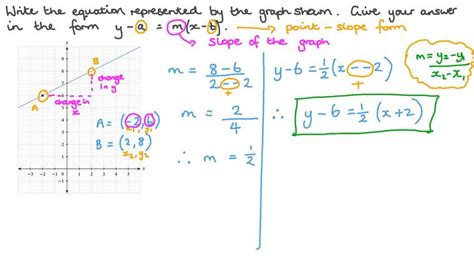 Write the equation represented by the graph shown. Give your answer
in the form y - a = m(x - b). → point - slope form
slope of the graph
B
change in y
A
change in x
A = (-2, 6)
x₁, y₁
B = (2, 8)
x₂, y₂
m = 8 - 6 / 2 - - 2
+
m = 2 / 4
∴ m = 1/2
y - 6 = 1/2 (x - - 2)
+
∴ y - 6 = 1/2 (x + 2)
m = y₂ - y₁ / x₂ - x₁